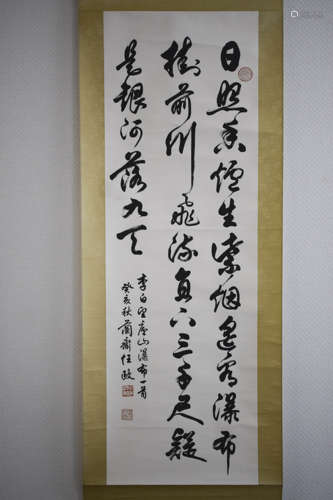 日照香炉生紫烟遥看瀑布
挂前川飞流直下三千尺疑
是银河落九天
李白望庐山瀑布一首
癸亥秋兰斋任政